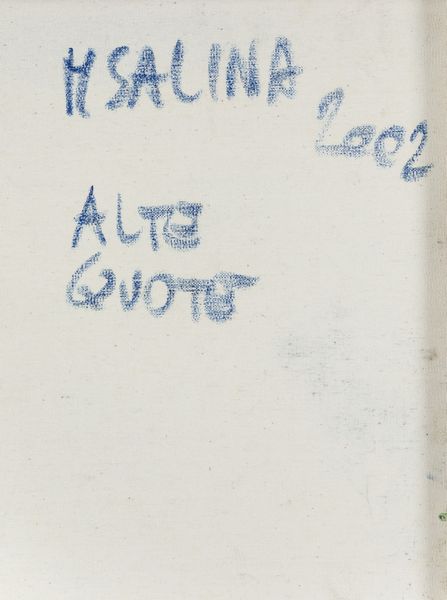 H SALINA
2002
ALTE
QUOTE